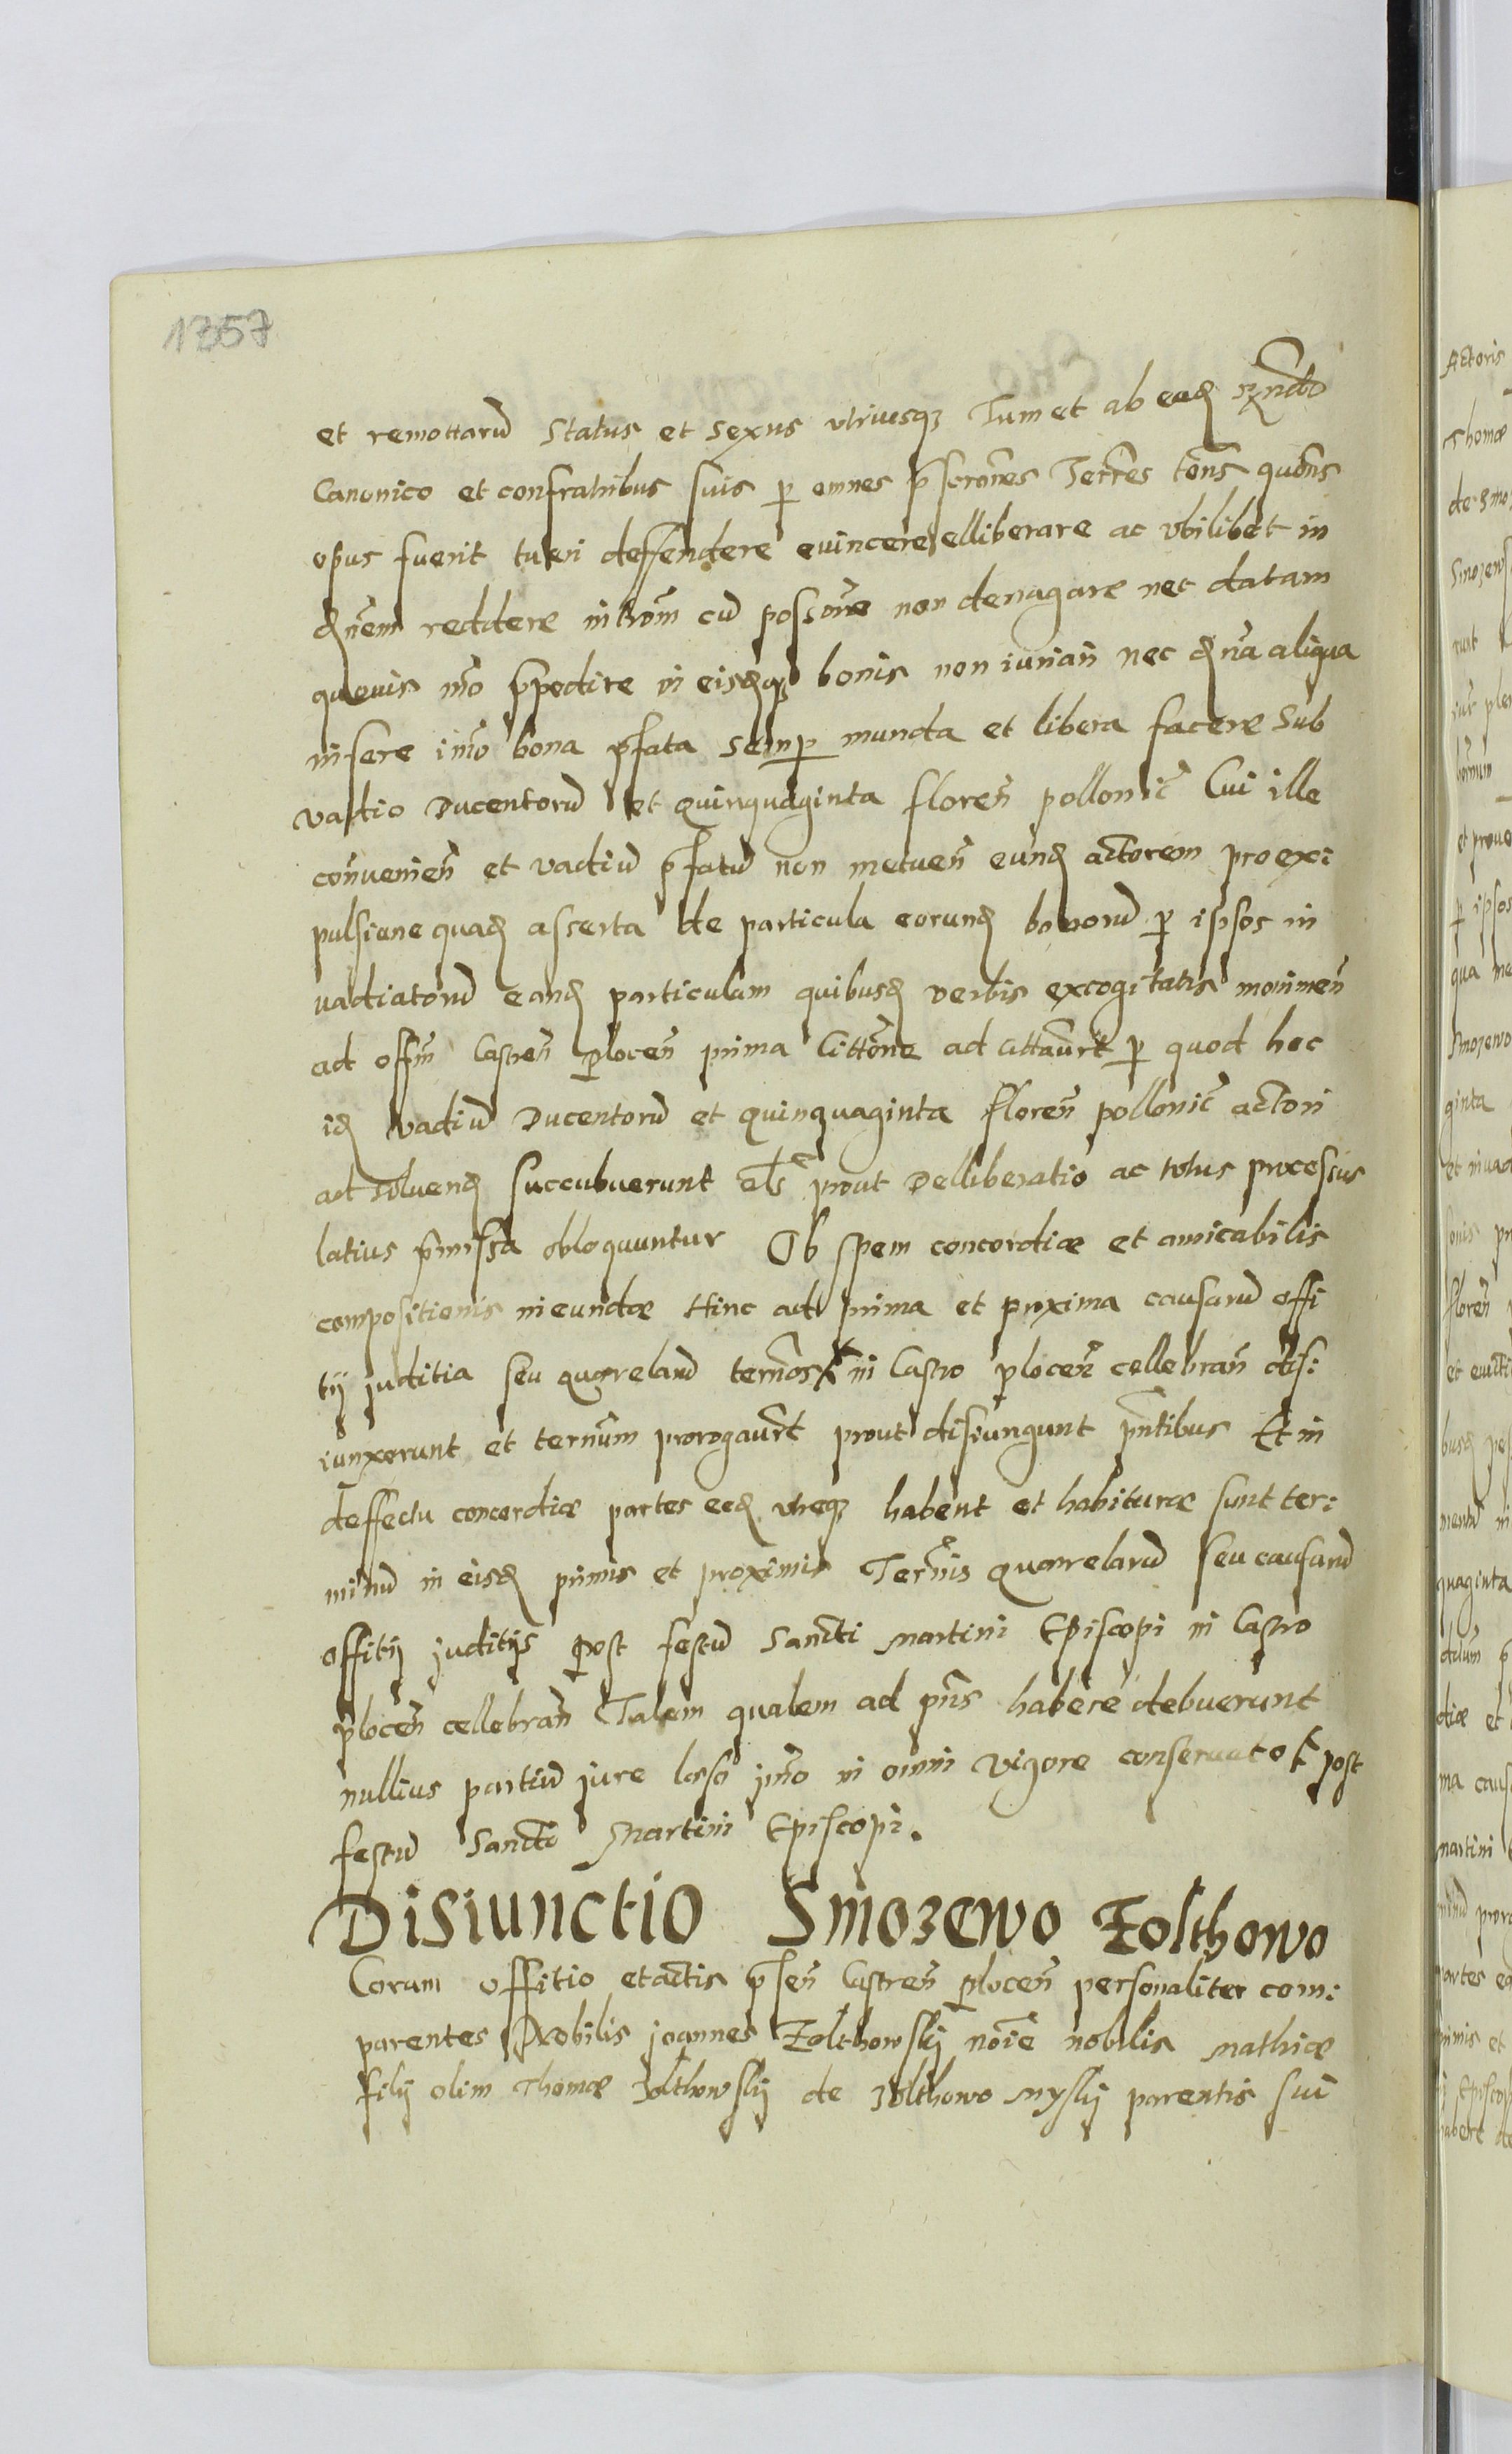 1357
et remottarũ Status et sexus vtriusqꝫ Tum et ab eadꝫ
Canonico et confratribus suis p omnes p̃scrones Terrẽs tens quõns
opus fuerit tueri deffendere euincere elliberare ac vbilibet in
reddere introm̃ cũ possone non denagare nec datam
queuis mõ p̃pedire in eisdꝫqꝫ bonis non iuriañ nec aliqua
insere imo bona p̃fata semp munda et libera facere Sub
vadio Ducentorũ et quinquaginta floreñ pollonic̃ Cui ille
conuenieñ et vadiũ p̃fatũ non metueñ eundꝫ actorem pro exi:
pulsione quadꝫ asserta de particula eorundꝫ bonorũ p ipsos in
uadiatorũ eandꝫ particulam quibusdꝫ verbis excogitatis monimeñ
ad offm̃ Castreñ plocen̄ prima Cittõne ad cittaur̃t p quod hoc
idꝫ vadiũ Ducentorũ et quinquaginta floreñ pollonic̃ actori
ad soluendꝫ succubuerunt als̃ prout Delliberatio ac totus processus
latius p̃missa obloquuntur Ob spem concordiæ et amicabilis
compositionis ineundæ Hinc ad prima et proxima causarũ offi
tij juditia seu quærelarũ termos in Castro ploceñ cellebrañ dis:
iunxerunt et ternum prorogaur̃t prout disiungunt pñtibus Et in
deffectu concordiæ partes eedꝫ vtreqꝫ habent et habituræ sunt ter:
minũ in eisdꝫ primis et proximis Ternis quærelarũ seu causarũ
offitij juditijs post festũ Sancti Martini Episcopi in Castro
ploceñ cellebrañ Talem qualem ad pñs habere debuerunt
nullius partiũ jure læso imo in omni vigore conseruato post
festũ Sancti Martini Episcopi.
Disiunctio Smozewo Zolthowo
Coram offitio et actis p̃señ Castreñ ploceñ personaliter com:
parentes Nobilis joannes Zolthowskij noie nobilis Mathiæ
filij olim Thomæ Zolthowskij de Zolthowo Myskij parentis sui
Actoris
Thomæ
de Smo
Smozews
et proue
p ipsos
qua me
Smozewo
ginta
et inuad
floreñ
et euicti
quaginta
diæ et
ma caus
Martini
partes ee
rimis et
Episcop
habere de